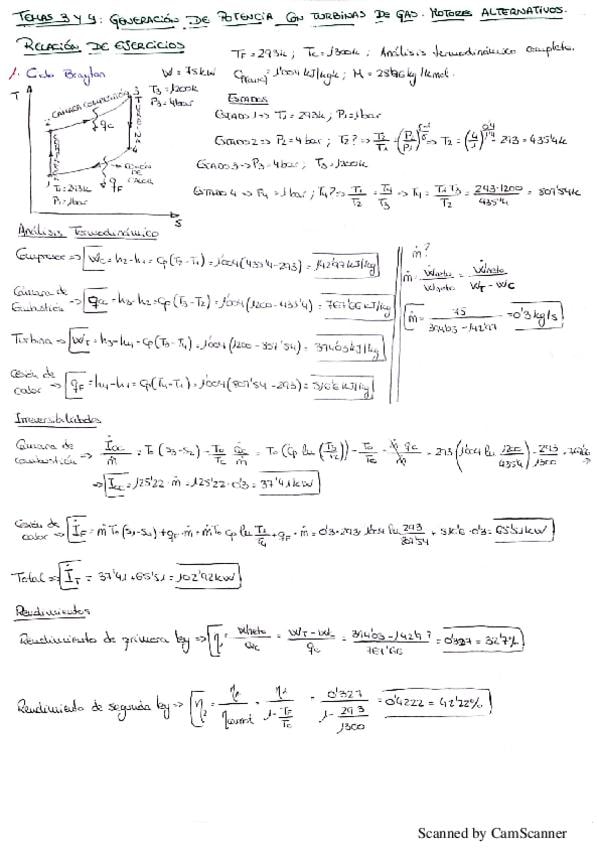 TEMAS 3 Y 4: GENERACIÓN DE POTENCIA CON TURBINAS DE GAS. MOTORES ALTERNATIVOS.
RELACIÓN DE EJERCICIOS
TF = 293k ; TC = 1300k ; Análisis termodinámico completo.
1. Ciclo Brayton
W = 75kW
M = 28'96 kg/kmol.
T3 = 1200k
P3 = 4bar
T
CÁMARA COMBUSTIÓN
qc
CESIÓN DE CALOR
qF
T1 = 293k
P1 = 1bar
S
ESTADOS
ESTADO 1 => T1 = 293k, P1 = 1bar
ESTADO 2 => P2 = 4bar, T2? => T2/T1 = (P2/P1) => T2 = (4/1)^0'4/1'4 · 293 = 435'4k
ESTADO 3 => P3 = 4bar, T3 = 1200k
ESTADO 4 => P4 = 1bar, T4? => T1/T2 = T4/T3 => T4 = T1·T3/T2 = 293·1200/435'4 = 807'54k
Análisis Termodinámico
Compresor => Wc = h2-h1 = Cp(T2-T1) = 1'004(435'4-293) = 142'97 kJ/kg
Cámara de Combustión => qc = h3-h2 = Cp(T3-T2) = 1'004(1200-435'4) = 767'66 kJ/kg
Turbina => WT = h3-h4 = Cp(T3-T4) = 1'004(1200-807'54) = 394'03 kJ/kg
Cesión de calor => qF = h4-h1 = Cp(T4-T1) = 1'004(807'54-293) = 516'6 kJ/kg
ṁ?
ṁ = Ẇneto/Wneto = Ẇneto/WT-WC
ṁ = 75/394'03-142'97 = 0'3 kg/s
Irreversibilidades
Cámara de combustión => İcc/ṁ = T0(s3-s2) - T0/TC · Q̇c/ṁ = T0(Cp ln(T3/T2)) - T0/TC · ṁ qc/ṁ = 293(1'004 ln 1200/435'4) - 293/1300 · 767'66 =>
=> İcc = 125'22 · ṁ = 125'22 · 0'3 = 37'41kW
Cesión de calor => İF = ṁT0(s1-s4) + qF·ṁ = ṁT0 Cp ln T1/T4 + qF·ṁ = 0'3·293·1'004 ln 293/807'54 + 516'6·0'3 = 65'51kW
Total => İT = 37'41+65'51 = 102'92kW
Rendimientos
Rendimiento de primera ley => η = Wneto/qc = WT-Wc/qc = 394'03-142'97/767'66 = 0'327 = 32'7%
Rendimiento de segunda ley => η2 = η/ηcarnot = η/1-TF/TC = 0'327/1-293/1300 = 0'4222 = 42'22%
Scanned by CamScanner